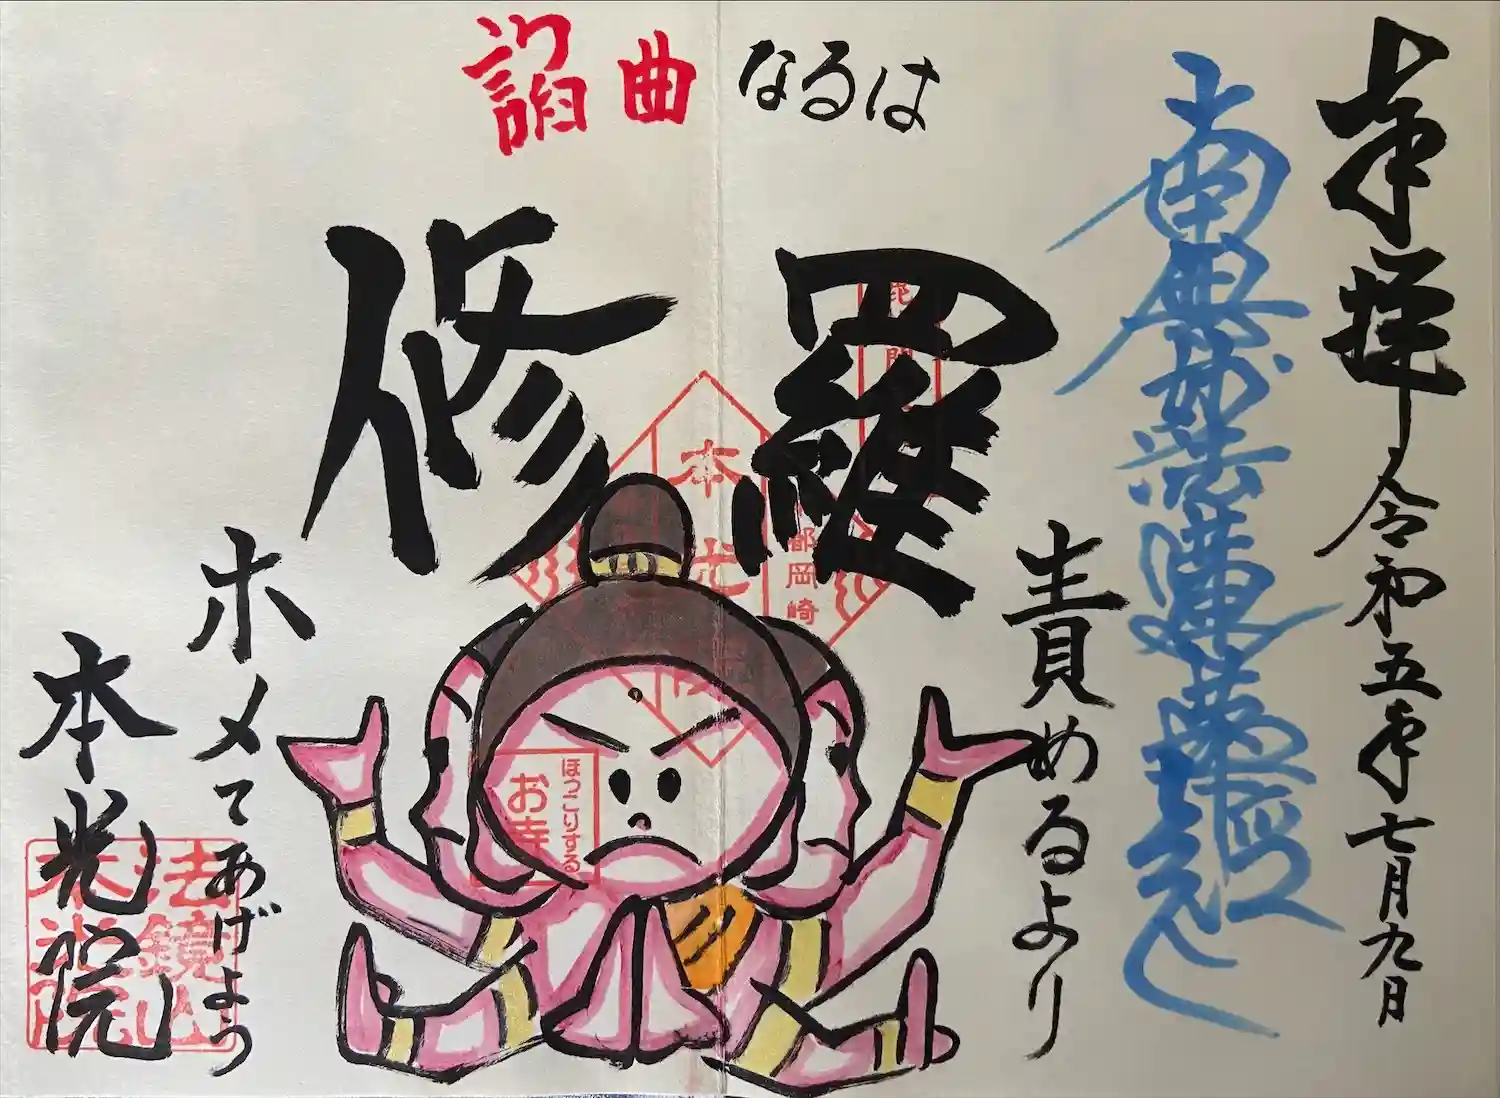 奉拝
令和五年七月九日
南無妙法蓮華経
諂曲なるは
修羅
責めるより
ホメてあげよう
本光院
本光院
都岡崎
ほっこりする
お寺
法鏡山
本光院